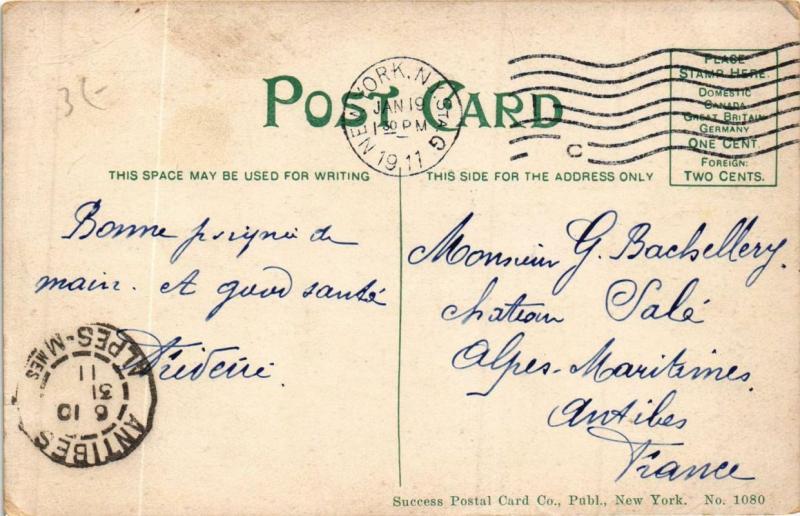 3-
POST CARD
NEW YORK, N.Y. STA G
JAN 19
1 30 PM
1911
C
PLACE
STAMP HERE.
DOMESTIC
CANADA
GREAT BRITAIN
GERMANY
ONE CENT.
FOREIGN:
TWO CENTS.
THIS SPACE MAY BE USED FOR WRITING
THIS SIDE FOR THE ADDRESS ONLY
Bonne poignée de
main. et good santé
Frédéric.
Monsieur G. Bachellery.
chateau Salé
Alpes-Maritimes.
Antibes
France
ANTIBES
ALPES-MMES
6 10
31
11
Success Postal Card Co., Publ., New York. No. 1080